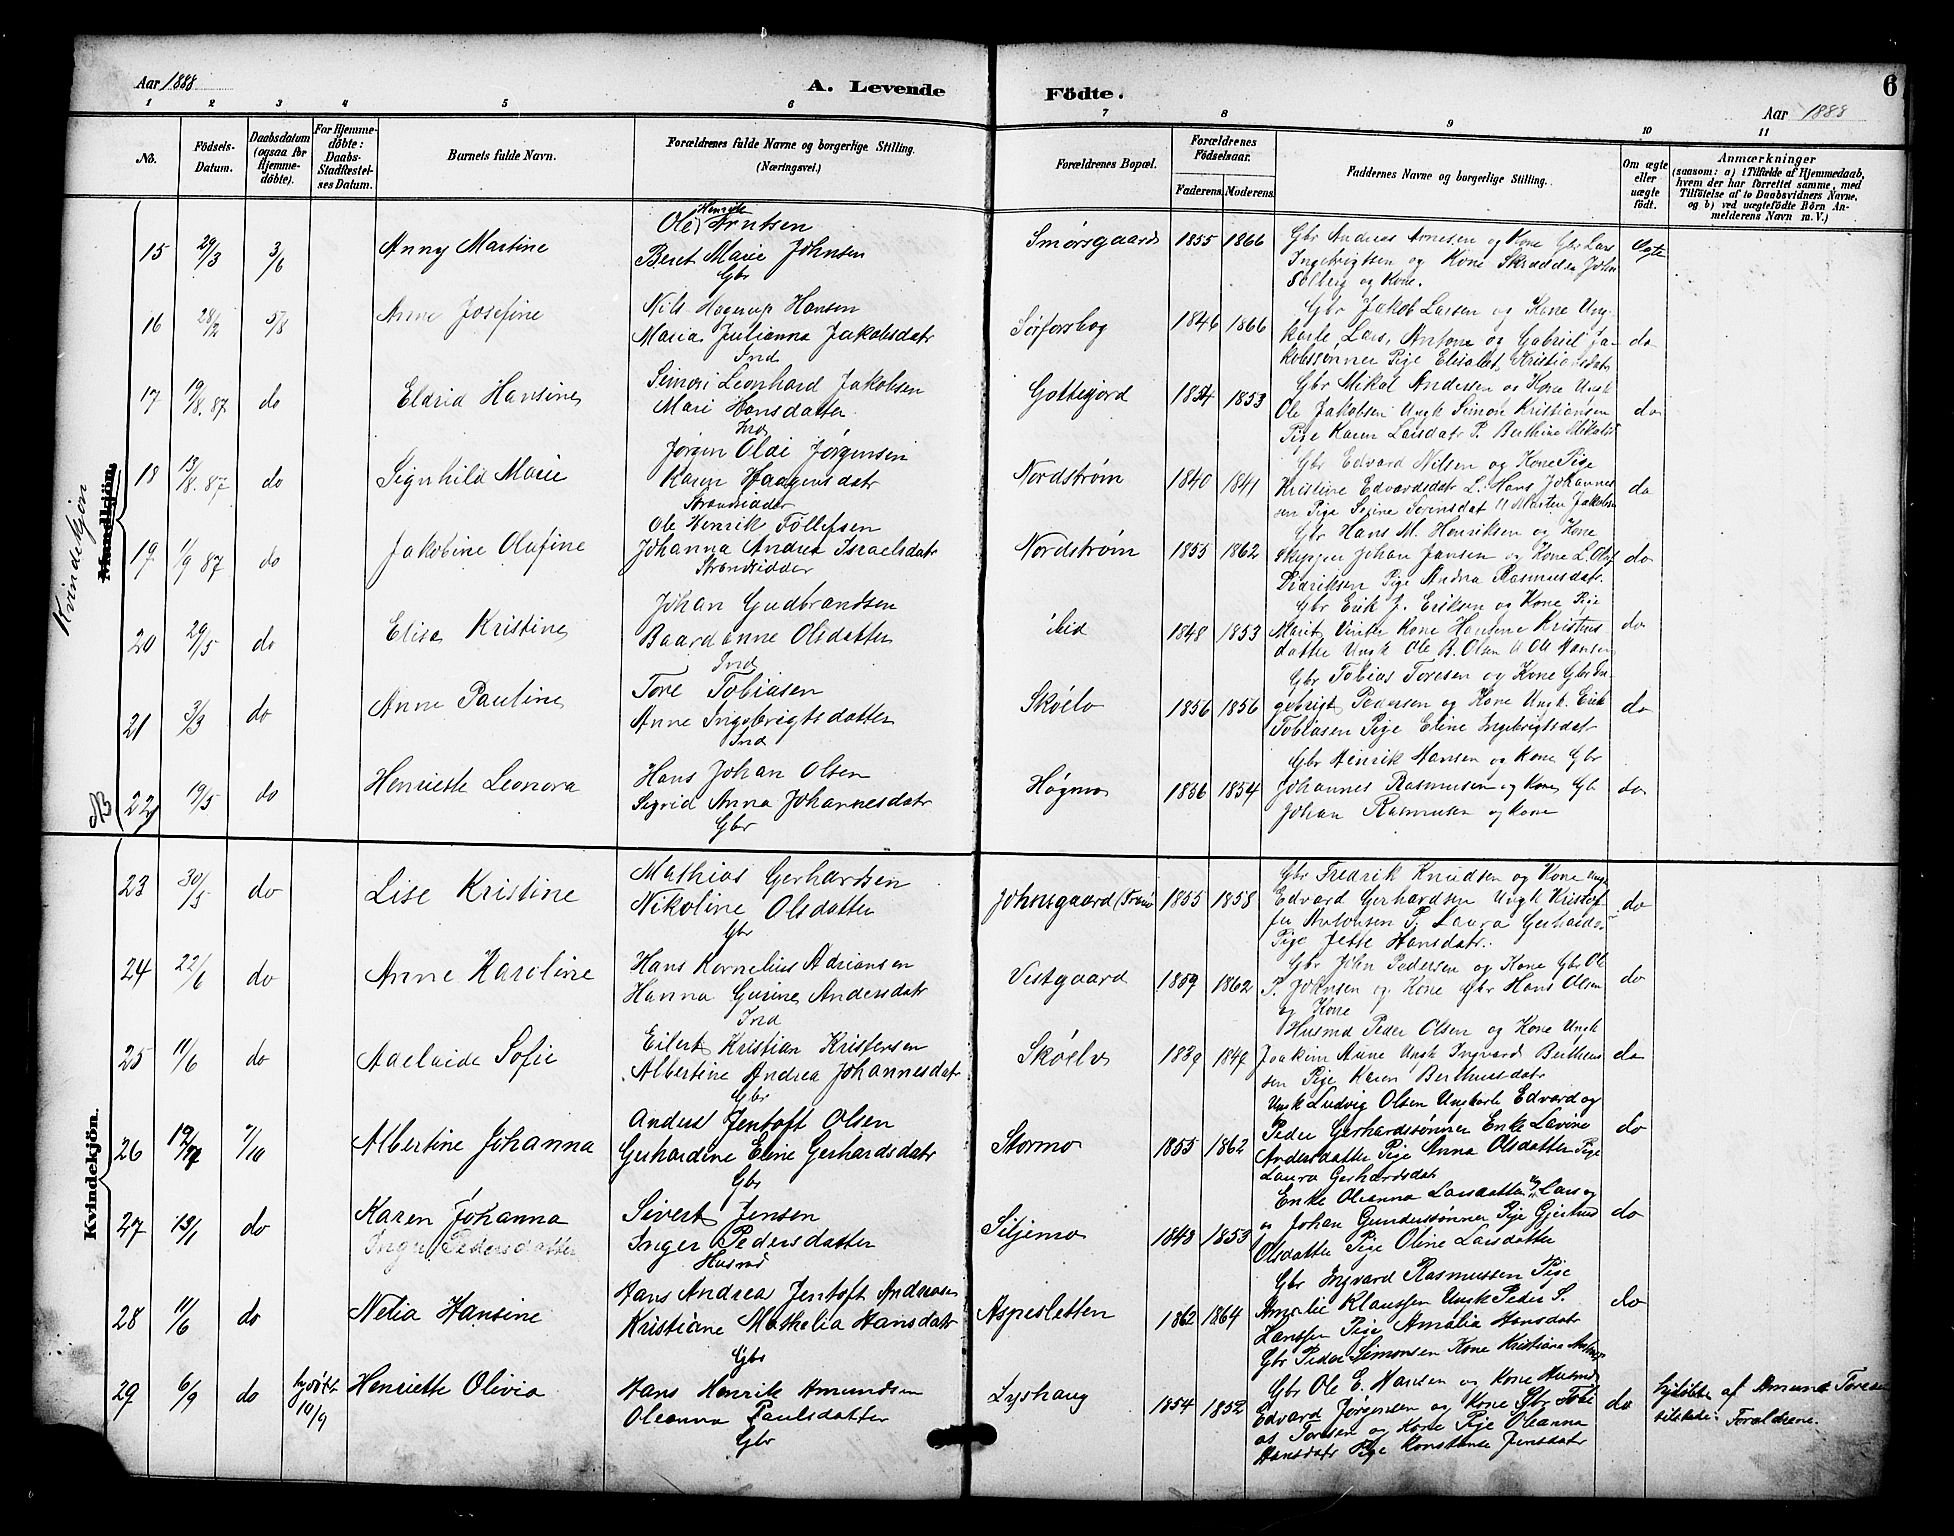 Aar 1888
A. Levende Födte.
6
Aar 1888
1 2 3 4 5 6 7 8 9 10 11
No.
Födsels-
Datum.
Daabsdatum
(ogsaa for
Hjemme-
døbte).
For Hjemme-
døbte:
Daabs-
Stadfæstel-
ses Datum.
Barnets fulde Navn.
Forældrenes fulde Navne og borgerlige Stilling.
(Næringsvei.)
Forældrenes Bopæl.
Forældrenes
Födselsaar.
Faderens. Moderens.
Faddernes Navne og borgerlige Stilling.
Om ægte
eller
uægte
födt.
Anmærkninger
(saasom: a) i Tilfælde af Hjemmedaab,
hvem der har forrettet samme, med
Tilføielse af to Daabsvidners Navne,
og b) ved uægtefödte Börn An-
melderens Navn m. V.)
Kvindekjøn
Mandkjön.
15 29/3 3/6 Anny Martine
Ole Henrik Arntsen
Beret Marie Johnsen
Gbr
Smørsgaard 1855 1866
Gbr Andreas Arnesen og Kone Gbr Lars
Ingebrigtsen og Kone Skrædder John
Solberg og Kone.
Ægte
16 28/2 5/8 Anne Josefine
Nils Hagerup Hansen
Maria Julianna Jakobsdatr
Ind
Sørforsbog 1846 1866
Gbr Jakob Larsen og Kone Ung-
karle Lars, Antone og Gabriel Ja-
kobssønner Pige Elisabet Kristiansdatr
do
17 19/8.87 do Eldrid Hansine
Simon Leonhard Jakobsen
Mari Hansdatter
Ind
Gottesjord 1854 1853
Gbr Mikal Andersen og Kone Ungk
Ole Jakobsen Ungk Simon Kristiansen
Pige Karen Larsdatr P. Berthine Mikalsd
do
18 13/8.87 do Signhild Marie
Jørgen Olai Jørgensen
Karen Haagensdatr
Strandsidder
Nordstrøm 1840 1841
Gbr Edvard Nilsen og Kone Pige
Kristine Edvardsdatr L. Hans Johannes
sen Pige Serine Sørensdat U Morten Jakobsen
do
19 1/9 87 do Jakobine Olufine
Ole Henrik Tollefsen
Johanna Andrea Israelsdatr
Strandsidder
Nordstrøm 1855 1862
Gbr Hans M. Henriksen og Kone
Skipper Johan Jansen og Kone L. Oluf
Didriksen Pige Andrea Rasmusdatr.
do
20 29/5 do Elisa Kristine
Johan Gudbrandsen
Baardanne Olsdatter
Ind
ibid 1848 1853
Gbr Erik J. Eriksen og Kone Pige
Marit Vinter Kone Hansine Kristens
datter Ungk Ole B. Olsen U Ole Hansen
do
21 3/3 do Anne Pauline
Tore Tobiasen
Anne Ingebrigtsdatter
Ind
Skøelv 1856 1856
Gbr Tobias Toresen og Kone Gbr In-
gebrigt Pedersen og Kone Ungk Erik
Tobiasen Pige Eline Ingebrigtsdatr
do
NB 22 19/5 do Henriette Leonora
Hans Johan Olsen
Sigrid Anna Johannesdatr
Gbr
Høgmo 1856 1854
Gbr Henrik Hansen og Kone Gbr
Johannes Rasmusen og Kone Gbr
Johan Rasmusen og Kone
do
Kvindekjön.
23 30/5 do Lise Kristine
Mathias Gerhardsen
Nikoline Olsdatter
Gbr
Johnsgaard 1855 1858
Gbr Fredrik Knudsen og Kone Ungk
Edvard Gerhardsen Ungk Kristof-
fer Antonsen P. Laura Gerhards-
Pige Jette Hansdatr.
do
24 22/6 do Anne Karoline
Hans Kornelius Adriansen
Hanna Gurine Andersdatr
Ind
Vestgaard 1859 1862
Gbr John Pedersen og Kone Gbr Ol
P. Johnsen og Kone Gbr Hans Olsen
og Kone
do
25 11/6 do Adelaide Sofie
Eilert Kristian Kristensen
Albertine Andrea Johannesdatr
Gbr
Skøelv 1839 1849
Husmd Peder Olsen og Kone Ungk
Joakim Aune Ungk Ingvard Bertheus
sen Pige Karen Berthusdatr
do
26 7/10 Albertine Johanna
Anders Jentoft Olsen
Gerhardine Eline Gerhardsdatr
Gbr
Stormo 1855 1862
Ungk Ludvig Olsen Ungkarle Edvard og
Peder Gerhardssønner Enke Lavine
Andersdatter Pige Anna Olsdatter Pige
Laura Gerhardsdat
do
27 13/1 do Karen Johanna
Inger Pedersdatter
Sivert Jensen
Inger Pedersdatter
Husmd
Siljemo 1843 1853
Enke Oleanna Larsdatter Lars og
Johan Gunderssønner Pige Gjertrud
Olsdatter Pige Oline Larsdatter
do
28 11/6 do Nelia Hansine
Hans Andrea Jentoft Andreasen
Kristiane Mathelia Hansdatr
Gbr
Aspesletten 1862 1864
Gbr Ingvard Rasmussen Pige
Amalie Klaussen Ungk Peder S.
Hanssen Pige Amalia Hansdatr
Gbr Peder Simonsen Kone Kristiane
do
29 6/9 do hjdøbt 10/9 Henriette Olivia
Hans Henrik Amundsen
Oleanna Paulsdatter
Gbr
Lyshaug 1854 1852
Gbr Ole E. Hansen og Kone Husmd
Edvard Jørgensen og Kone Gbr Tobi
as Toresen og Kone Pige Oleanna
Hansdatr Pige Konstanse Jensdatr
do
hjdøbt af Amund Toresen
tilstede: Forældrene.